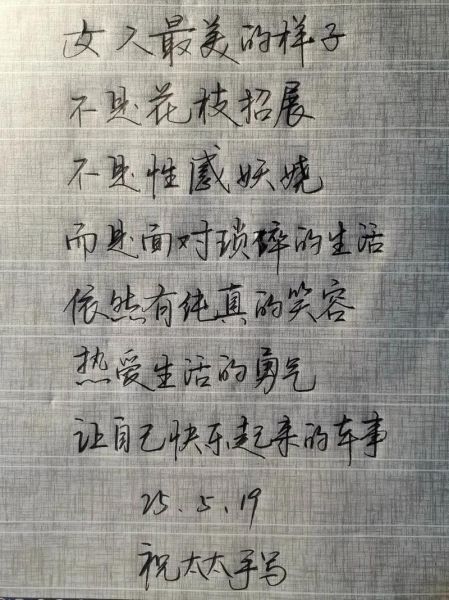 女人最美的样子
不是花枝招展
不是性感妖娆
而是面对琐碎的生活
依然有纯真的笑容
热爱生活的勇气
让自己快乐起来的本事
25.5.19
祝太太手写